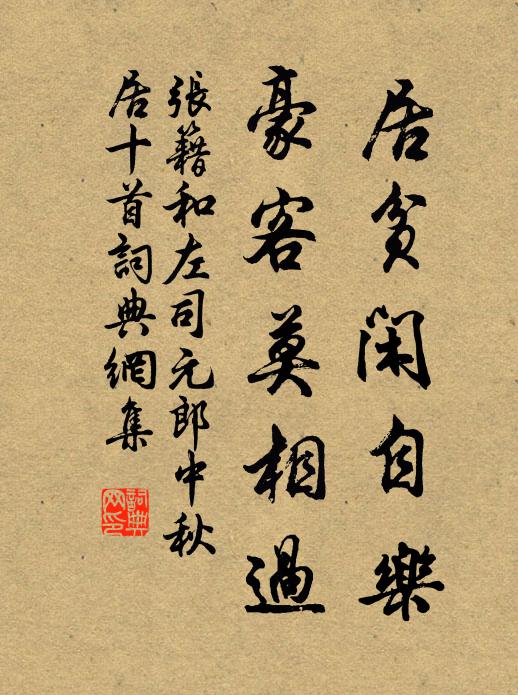 居貧閑自樂
豪客莫相過
張籍和左司元郎中秋
居十首詞典網集
詞典
网印